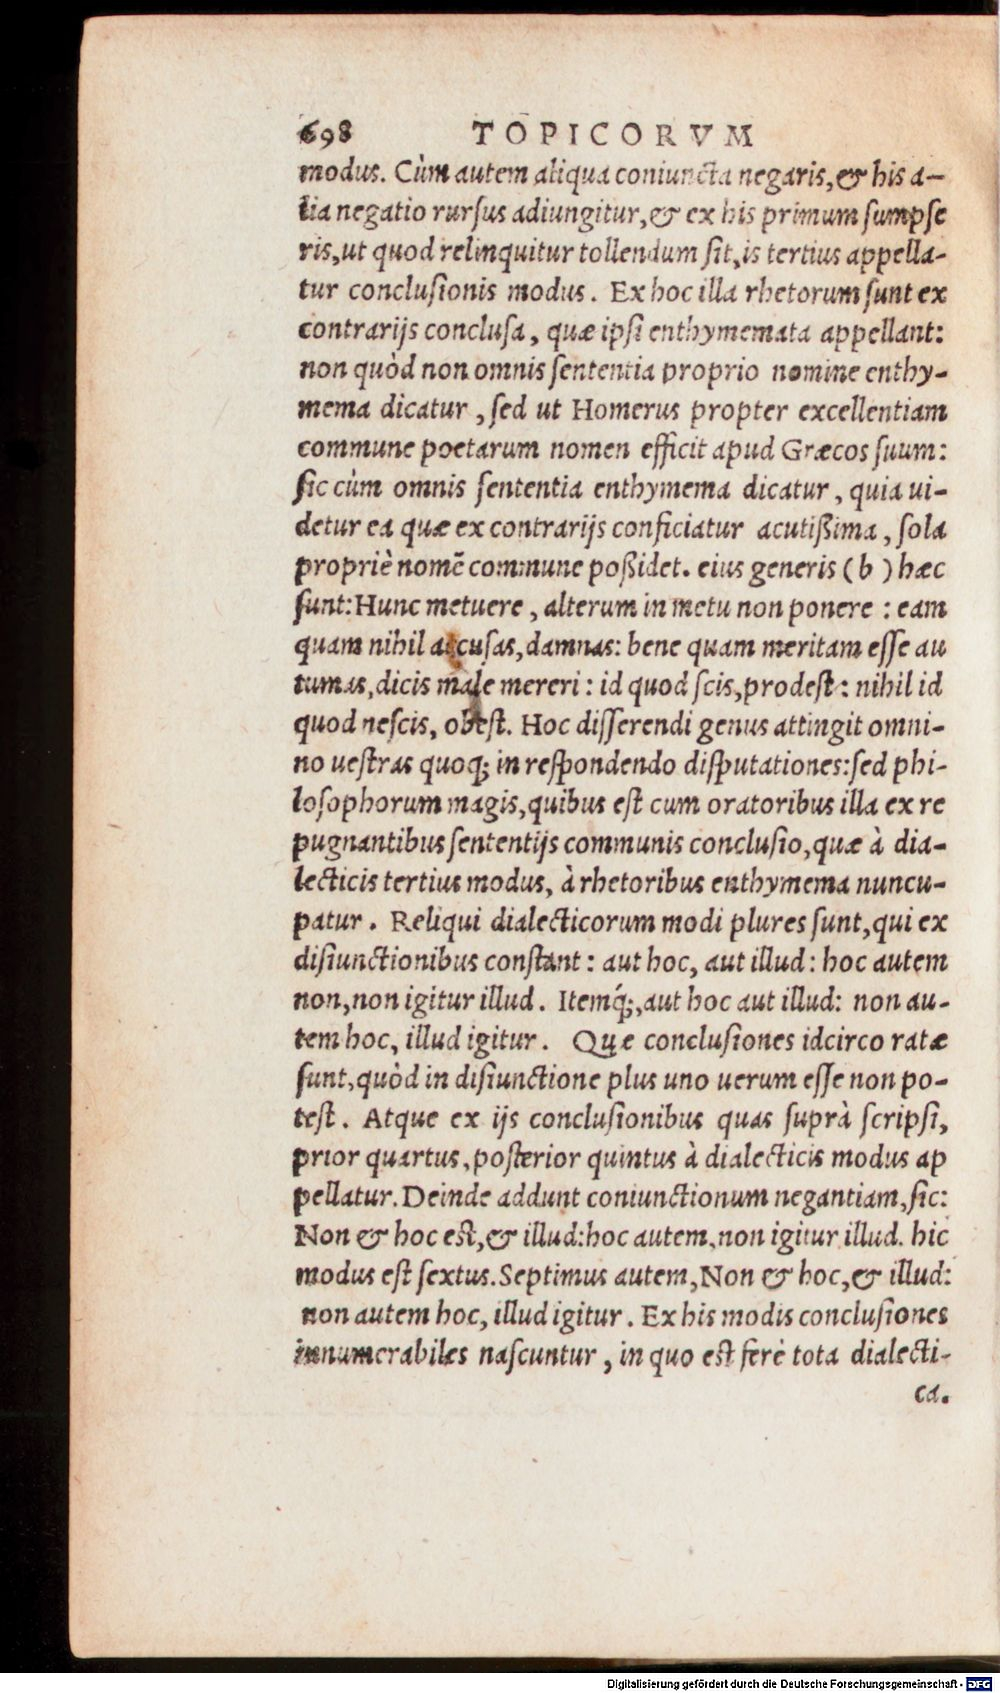 698 TOPICORVM
modus. Cùm autem aliqua coniuncta negaris, & his a-
lia negatio rursus adiungitur, & ex his primum sumpse
ris, ut quod relinquitur tollendum sit, is tertius appella-
tur conclusionis modus. Ex hoc illa rhetorum sunt ex
contrarijs conclusa, quæ ipsi enthymemata appellant:
non quòd non omnis sententia proprio nomine enthy-
mema dicatur, sed ut Homerus propter excellentiam
commune poetarum nomen efficit apud Græcos suum:
sic cùm omnis sententia enthymema dicatur, quia ui-
detur ea quæ ex contrarijs conficiatur acutißima, sola
propriè nomẽ commune poßidet. eius generis (b) hæc
sunt: Hunc metuere, alterum in metu non ponere: eam
quam nihil accusas, damnas: bene quam meritam esse au
tumas, dicis male mereri: id quod scis, prodest: nihil id
quod nescis, obest. Hoc disserendi genus attingit omni-
no uestras quoq; in respondendo disputationes: sed phi-
losophorum magis, quibus est cum oratoribus illa ex re
pugnantibus sententijs communis conclusio, quæ à dia-
lecticis tertius modus, à rhetoribus enthymema nuncu-
patur. Reliqui dialecticorum modi plures sunt, qui ex
disiunctionibus constant: aut hoc, aut illud: hoc autem
non, non igitur illud. Itemq́;, aut hoc aut illud: non au-
tem hoc, illud igitur. Quæ conclusiones idcirco ratæ
sunt, quòd in disiunctione plus uno uerum esse non po-
test. Atque ex ijs conclusionibus quas suprà scripsi,
prior quartus, posterior quintus à dialecticis modus ap
pellatur. Deinde addunt coniunctionum negantiam, sic:
Non & hoc est, & illud: hoc autem, non igitur illud. hic
modus est sextus. Septimus autem, Non & hoc, & illud:
non autem hoc, illud igitur. Ex his modis conclusiones
innumerabiles nascuntur, in quo est ferè tota dialecti-
ca.
Digitalisierung gefördert durch die Deutsche Forschungsgemeinschaft - DFG